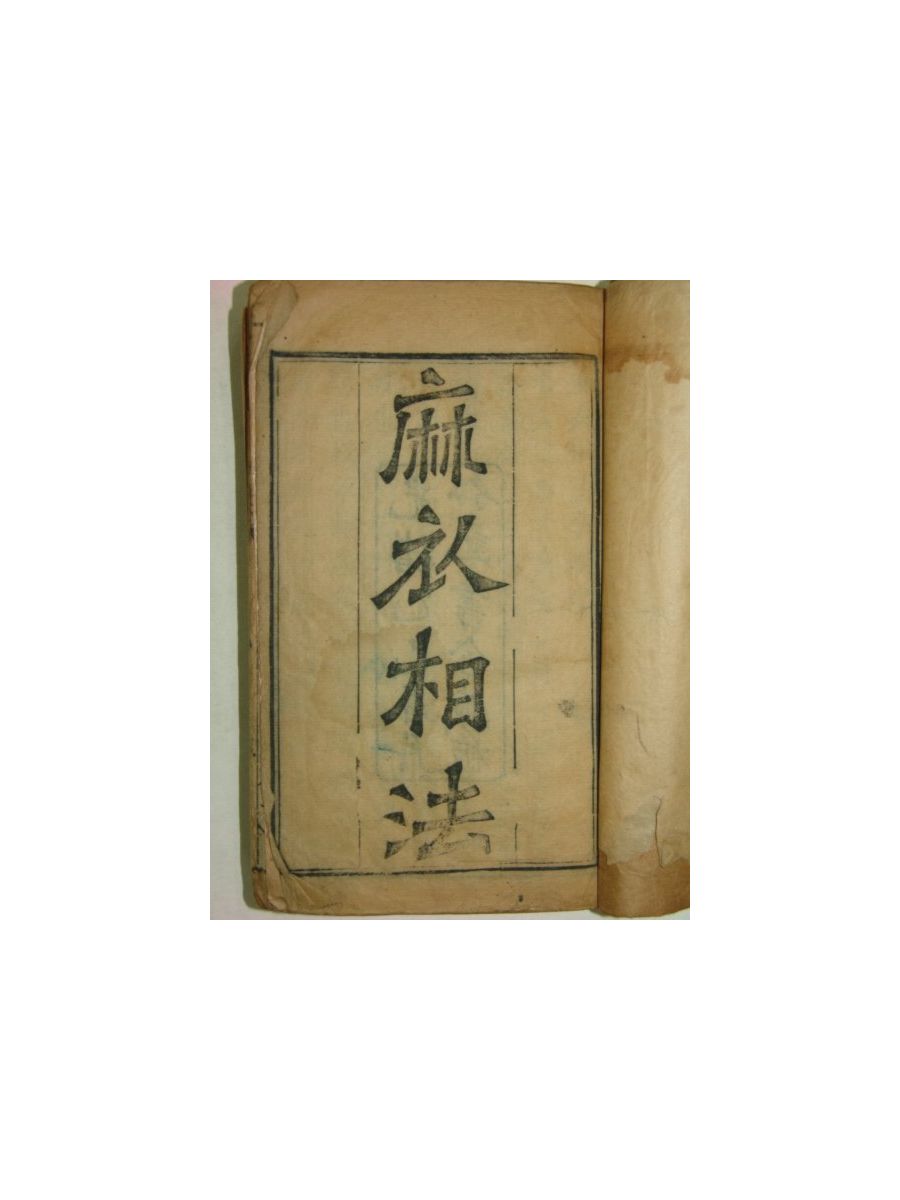 麻衣相法